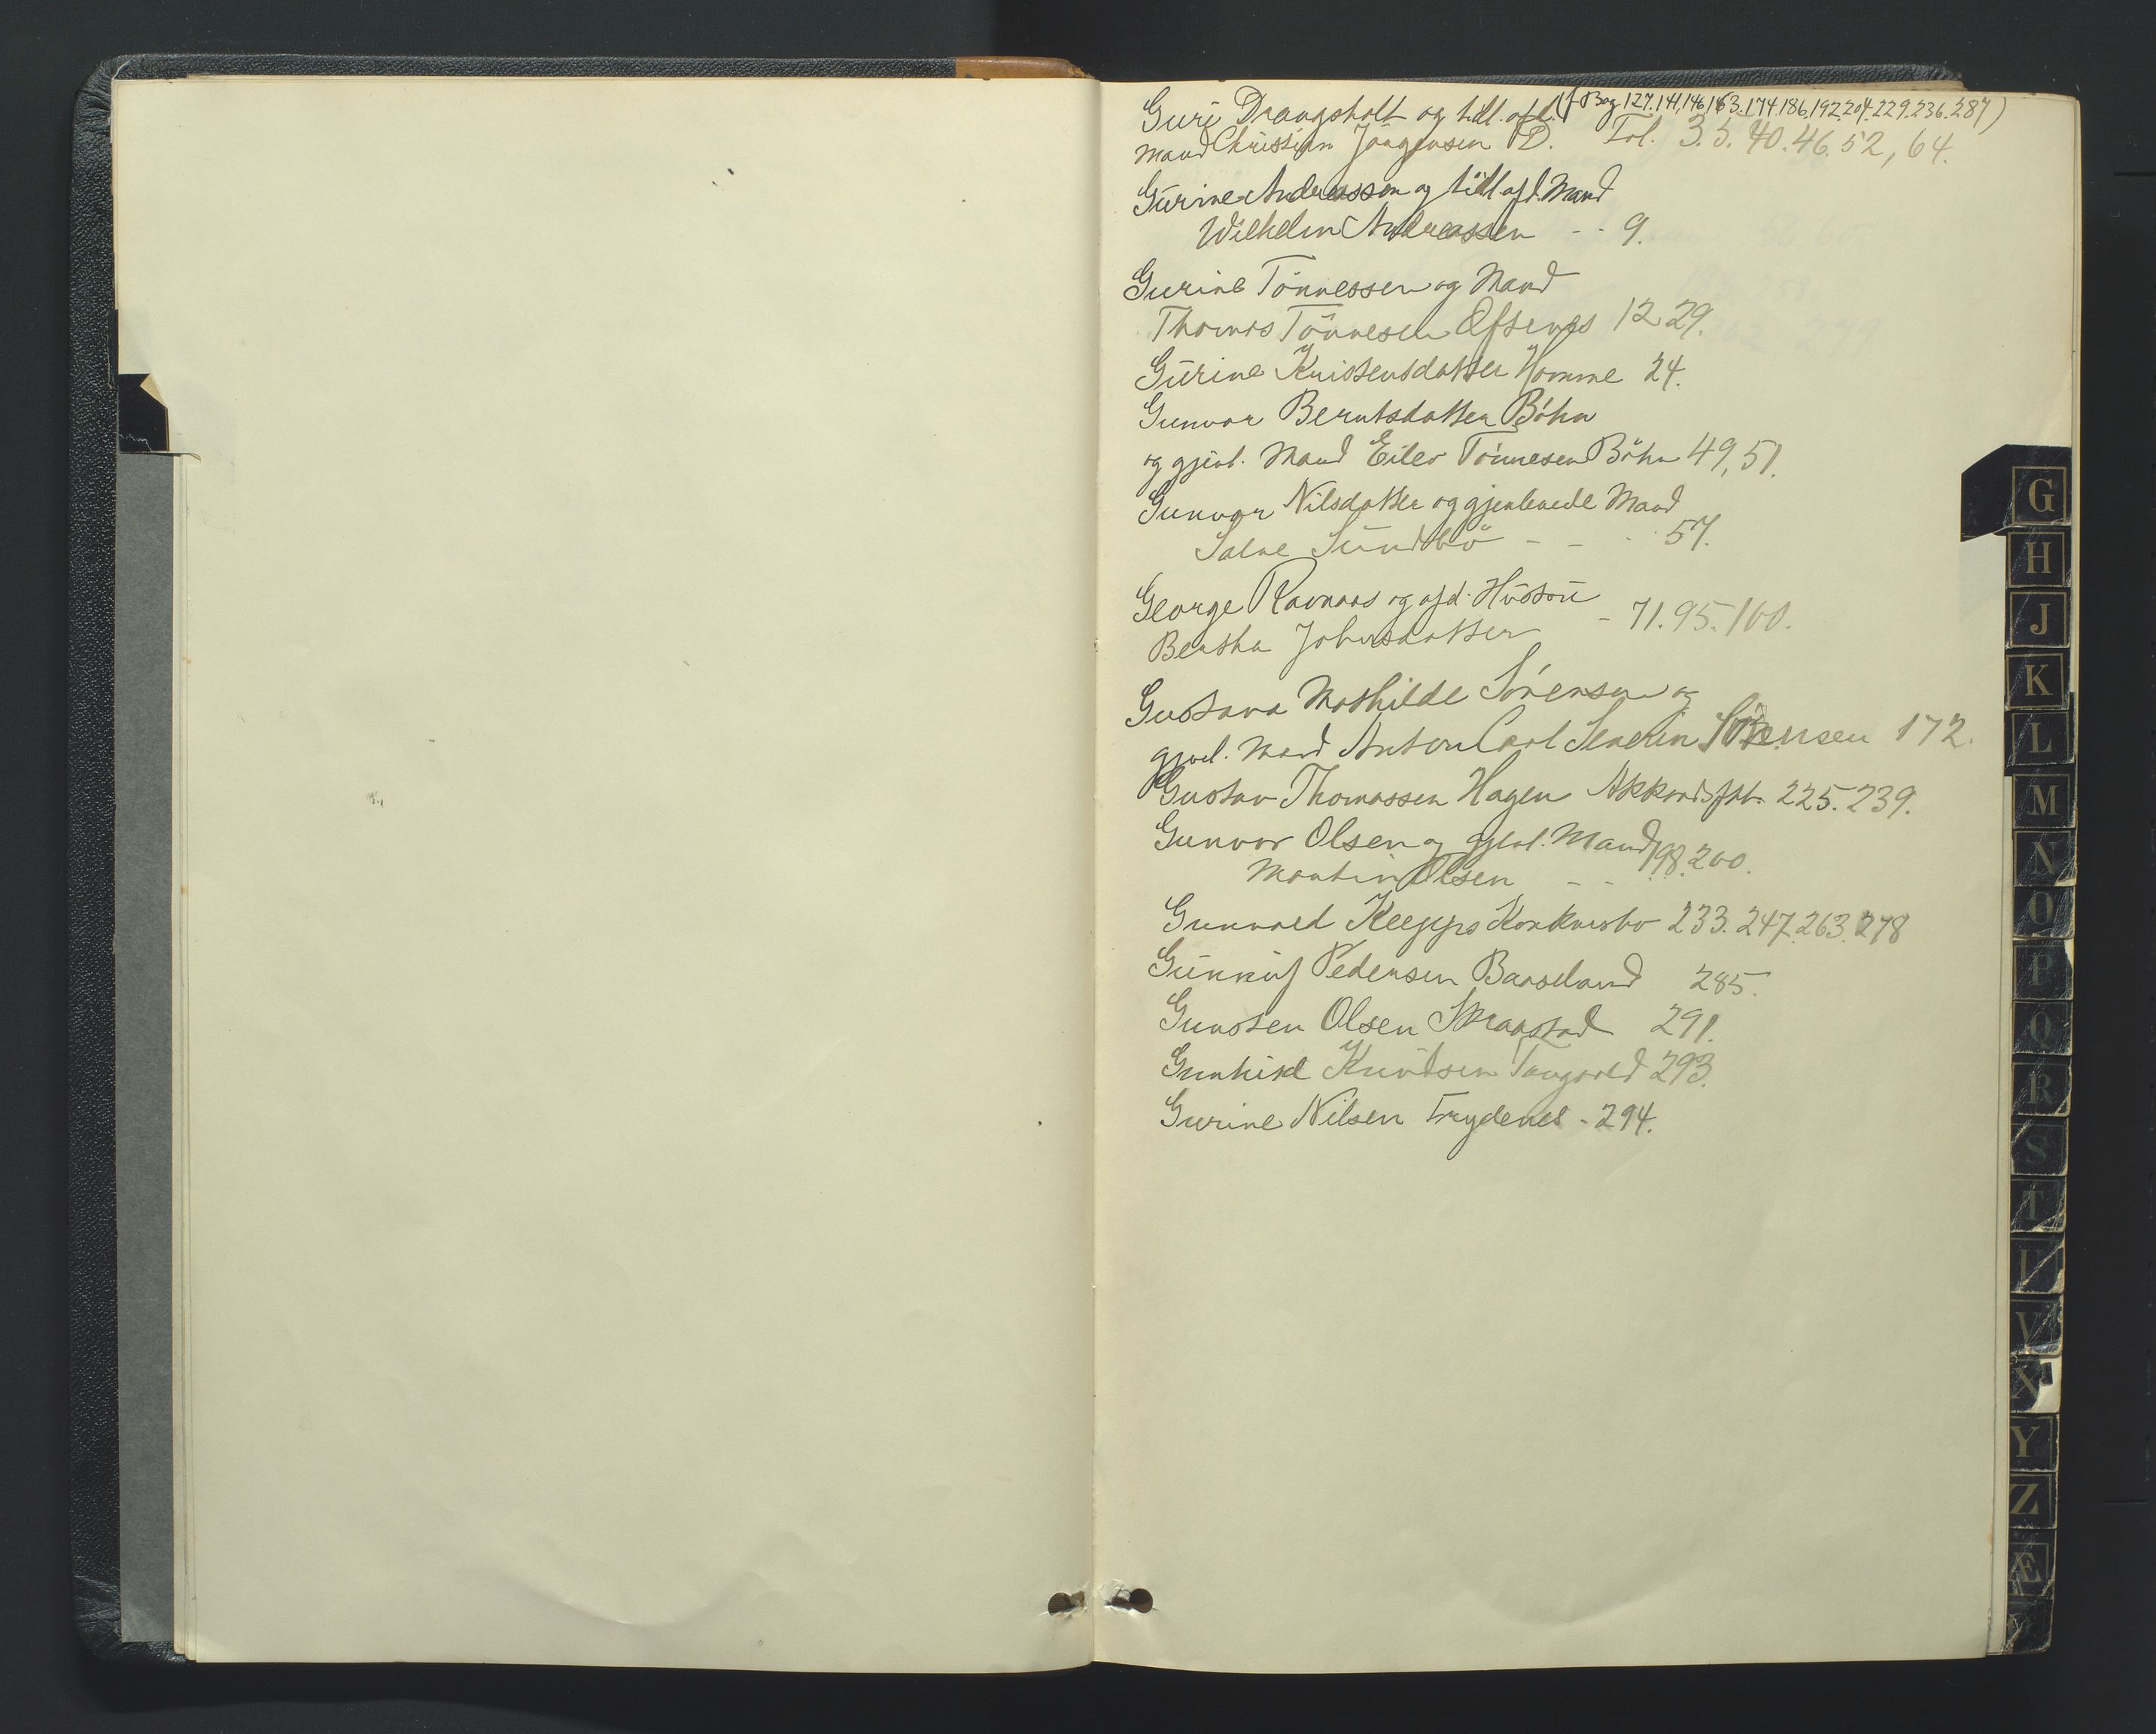 Guri Drangsholt og tidl. afd. (f Bog 127.141,146,163.174.186,192.204.229.236.287)
Mand Christian Jörgensen D. Fol. 3.5.40.46.52,64.
Gurine Andreassen og tidl afd. Mand
Wilhelm Andreassen - - 9.
Gurine Tönnessen og Mand
Thomas Tönnesen Öfsenes 12 29.
Gurine Knistensdatter Homme 24.
Gunvor Berntsdatter Böhn
og gjenl. Mand Eilev Tönnesen Böhn 49,51.
Gunvor Nilsdatter og gjenlevede Mand
Salve Sundbö - - - 57.
George Ravnaas og afd. Hustru
Bertha Johnsdatter - 71.95.100.
Gustava Mathilde Sörensen og
gjvl. Mand Anton Carl Severin Sörensen 172.
Gustav Thomassen Hagen Akkordsfhl. 225.239.
Gunvor Olsen og gjenl. Mand 198.200.
Martin Olsen - -
Gunvald Klepps Konkursbo 233.247.263.278
Gunnuf Pedersen Baaseland 285.
Gunsten Olsen Skraastad 291.
Gunhild Knudsen Tangvald 293.
Gurine Nilsen Frydenes - 294.
G
H
J
K
L
M
N
O
P
Q
R
S
T
U
V
X
Y
Z
Æ